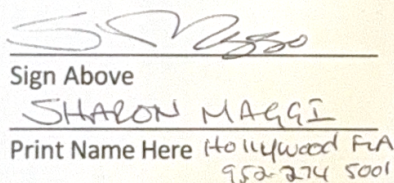 Sign Above
SHARON MAGGI
Print Name Here Hollywood FLA
952-274 5001